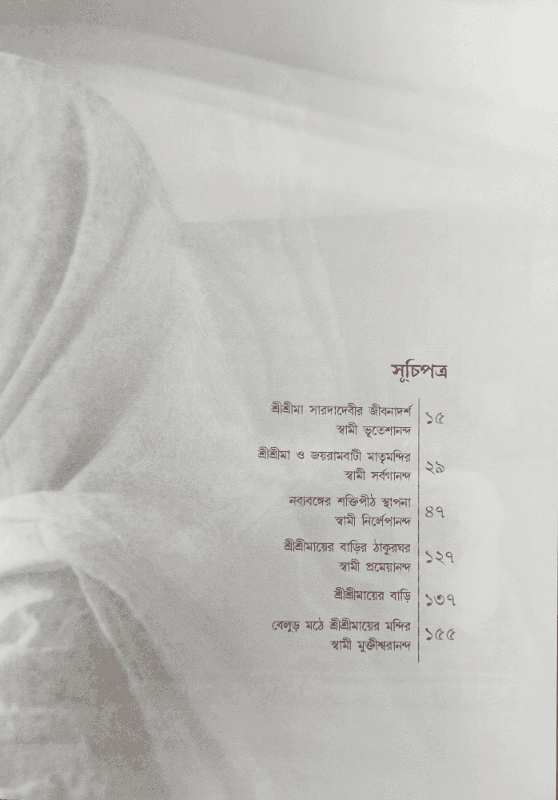 সূচিপত্র
শ্রীশ্রীমা সারদাদেবীর জীবনাদর্শ ১৫
স্বামী ভূতেশানন্দ
শ্রীশ্রীমা ও জয়রামবাটী মাতৃমন্দির ২৯
স্বামী সর্বগানন্দ
নব্যবঙ্গের শক্তিপীঠ স্থাপনা ৪৭
স্বামী নির্লেপানন্দ
শ্রীশ্রীমায়ের বাড়ির ঠাকুরঘর ১২৭
স্বামী প্রমেয়ানন্দ
শ্রীশ্রীমায়ের বাড়ি ১৩৭
বেলুড় মঠে শ্রীশ্রীমায়ের মন্দির ১৫৫
স্বামী মুক্তীশ্বরানন্দ